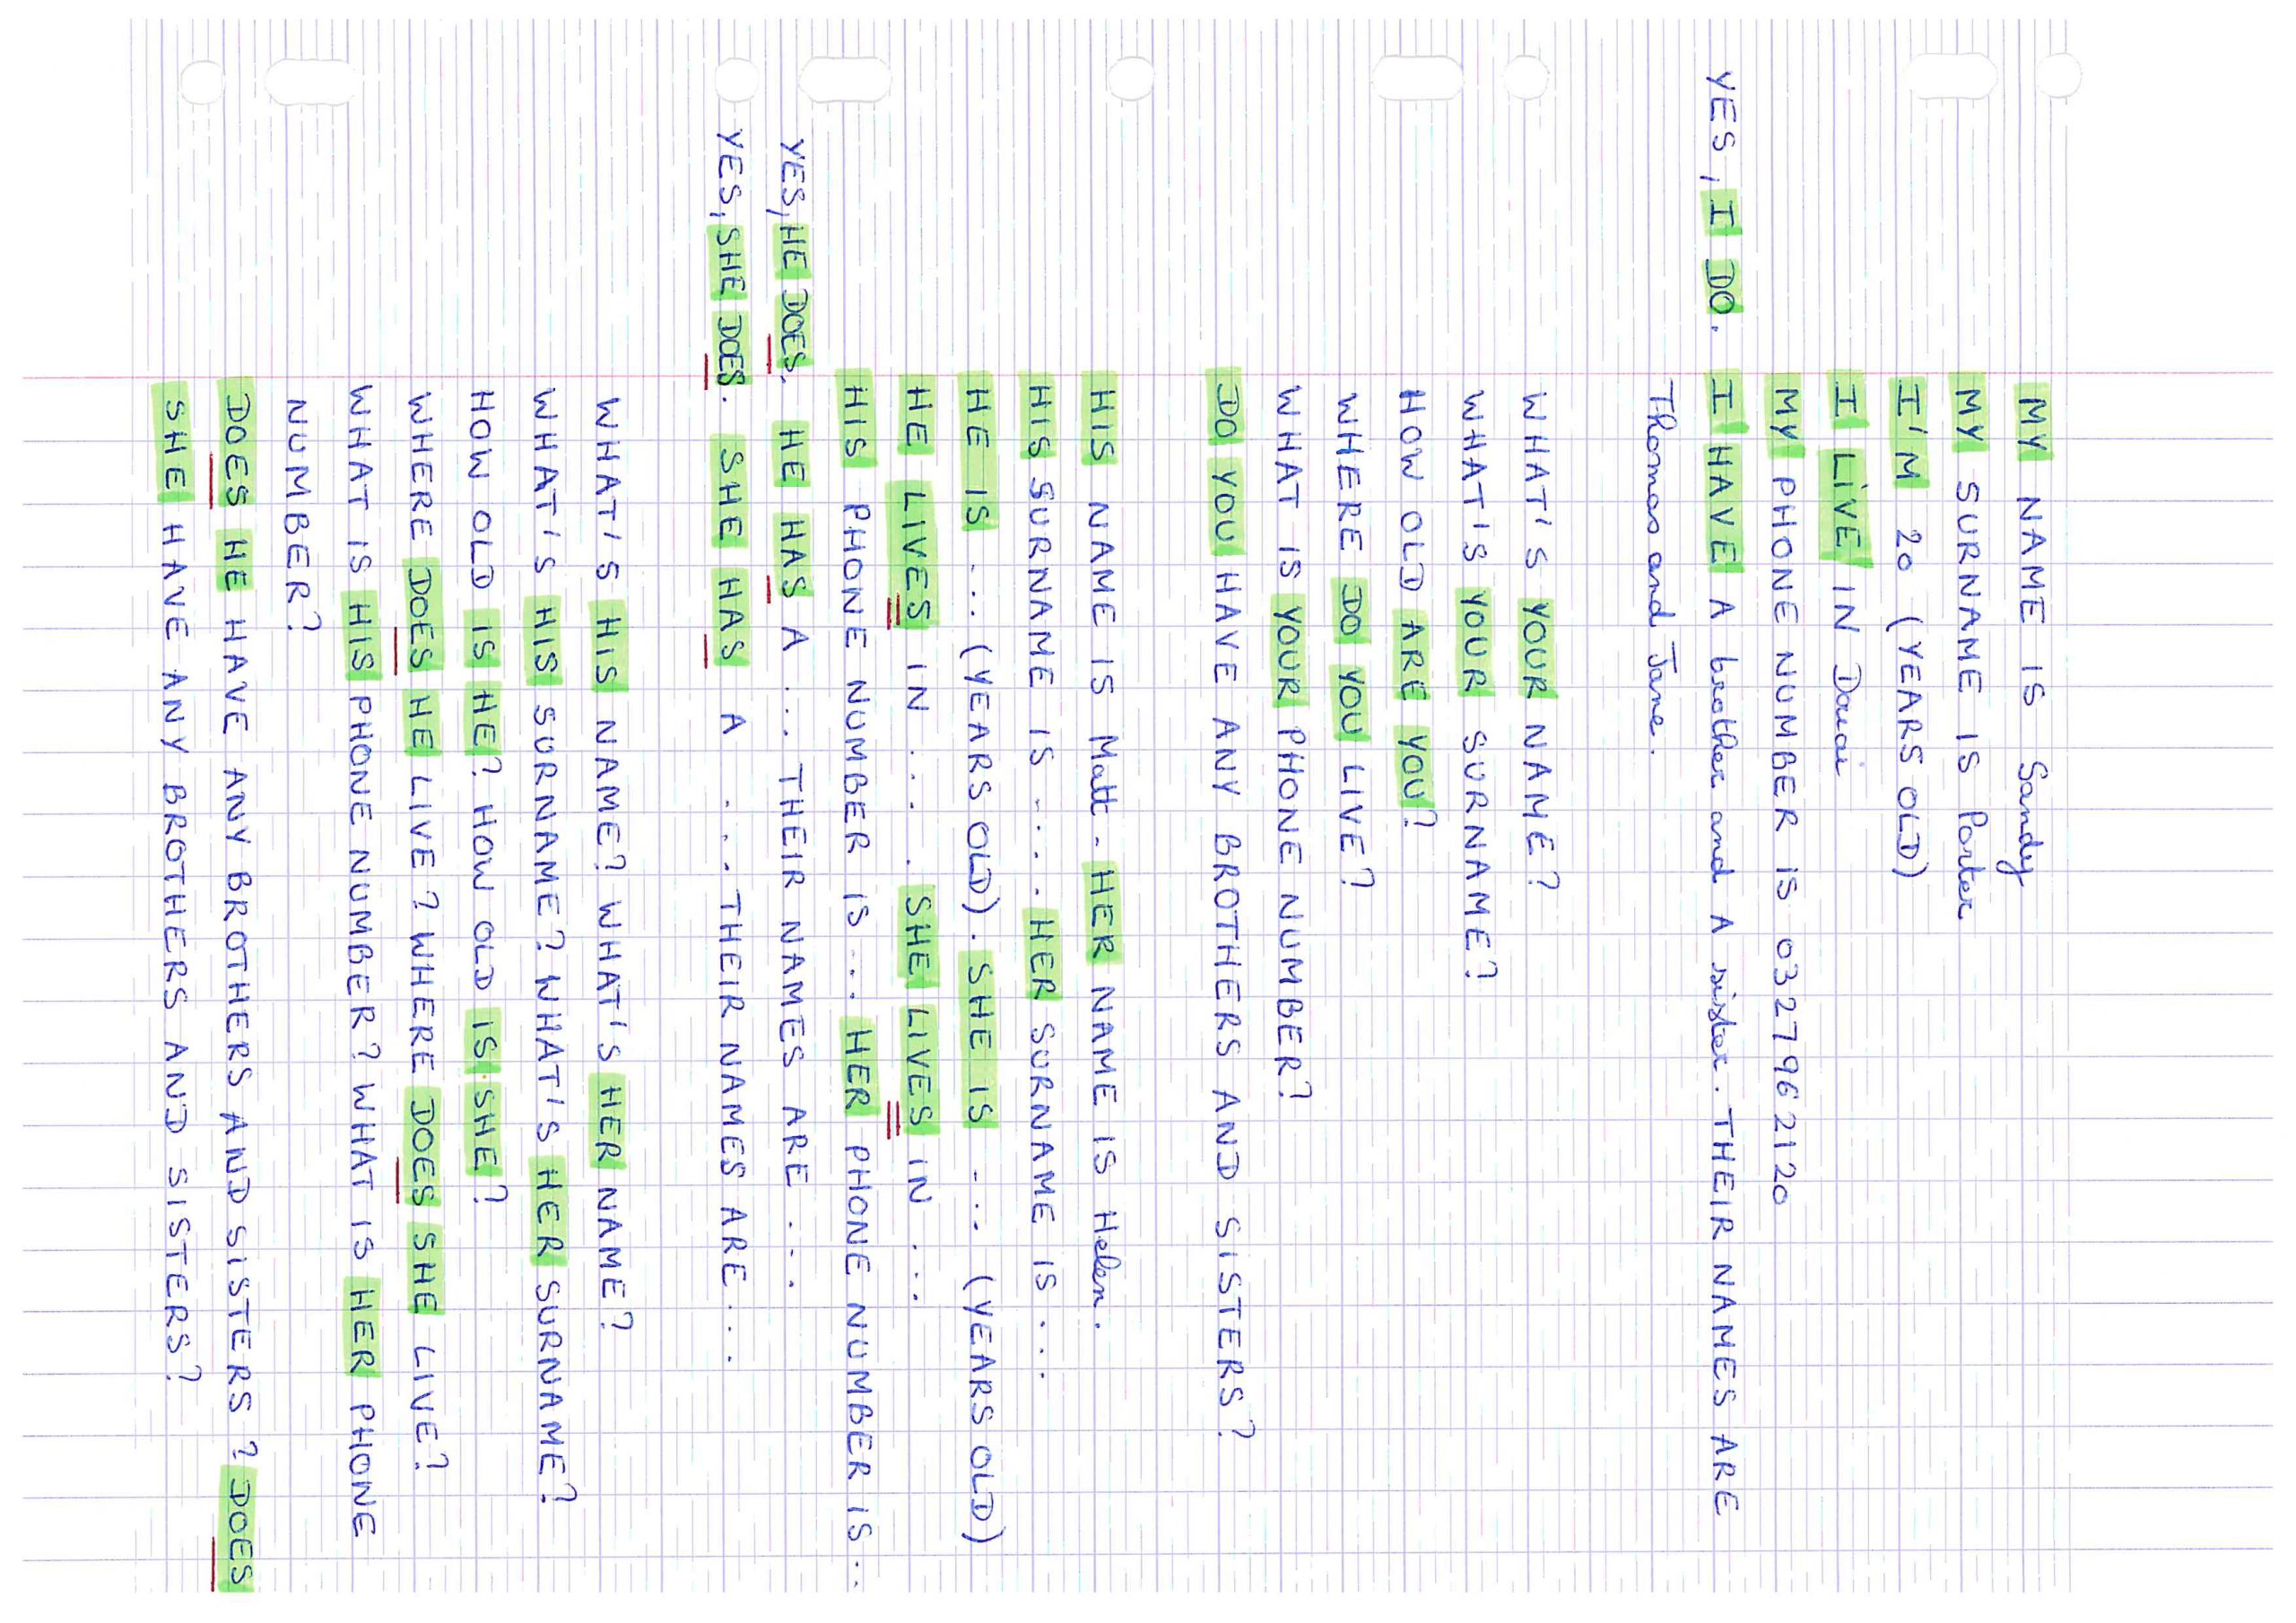 MY NAME IS Sandy
MY SURNAME IS Porter
I'M 20 (YEARS OLD)
I LIVE IN Douai
MY PHONE NUMBER IS 0327962120
YES, I DO. I HAVE A brother and A sister. THEIR NAMES ARE
Thomas and Jane.
WHAT'S YOUR NAME?
WHAT'S YOUR SURNAME?
HOW OLD ARE YOU?
WHERE DO YOU LIVE?
WHAT IS YOUR PHONE NUMBER?
DO YOU HAVE ANY BROTHERS AND SISTERS?
HIS NAME IS Matt. HER NAME IS Helen.
HIS SURNAME IS .... HER SURNAME IS ....
HE IS ... (YEARS OLD). SHE IS ... (YEARS OLD)
HE LIVES IN .... SHE LIVES IN ...
HIS PHONE NUMBER IS ... HER PHONE NUMBER IS ...
YES, HE DOES. HE HAS A ... THEIR NAMES ARE ...
YES, SHE DOES. SHE HAS A .... THEIR NAMES ARE ....
WHAT'S HIS NAME? WHAT'S HER NAME?
WHAT'S HIS SURNAME? WHAT'S HER SURNAME?
HOW OLD IS HE? HOW OLD IS SHE?
WHERE DOES HE LIVE? WHERE DOES SHE LIVE?
WHAT IS HIS PHONE NUMBER? WHAT IS HER PHONE
NUMBER?
DOES HE HAVE ANY BROTHERS AND SISTERS? DOES
SHE HAVE ANY BROTHERS AND SISTERS?